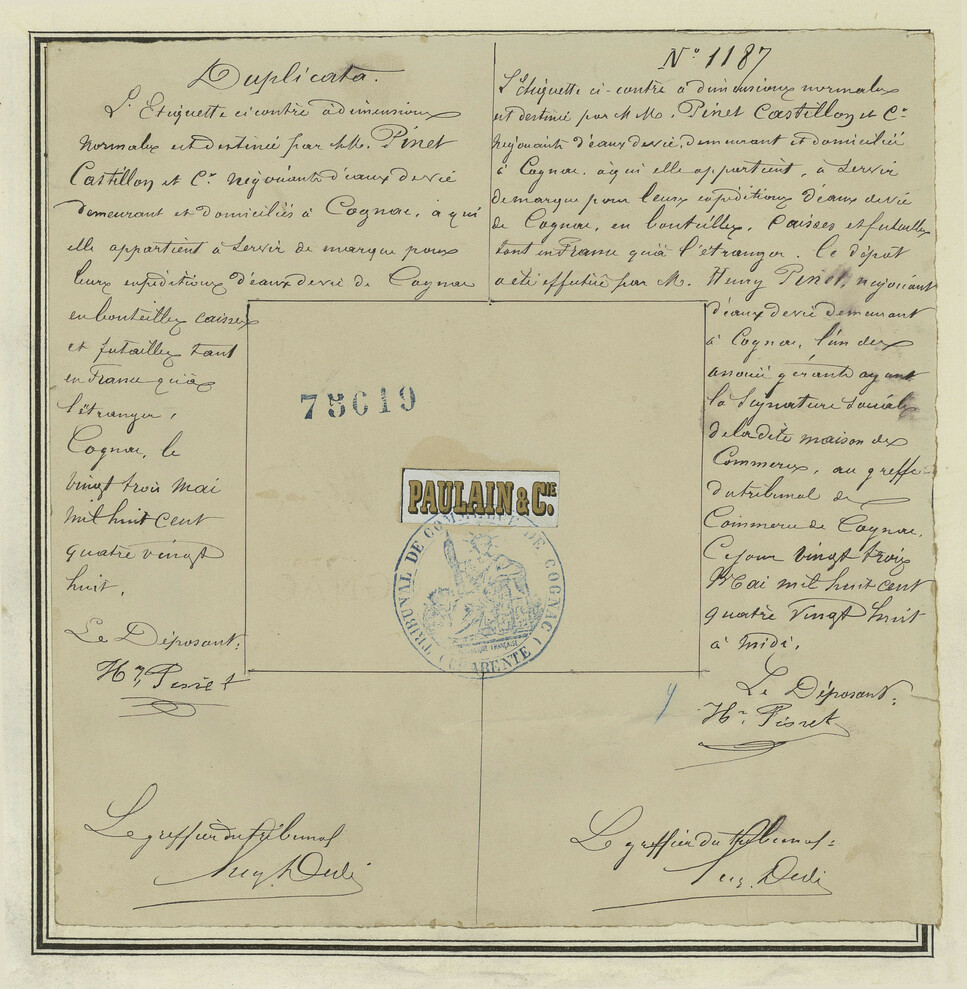 Duplicata.
L'Etiquette ci contre à dimensions
normales est destinée par MM. Pinet
Castillon et Cie Négociants d'eaux de vie
demeurant et domiciliés à Cognac, à qui
elle appartient à servir de marque pour
leurs expéditions d'eaux de vie de Cognac
en bouteilles caisses
et futailles tant
en France qu'à
l'étranger,
Cognac, le
vingt trois mai
mil huit cent
quatre vingt
huit.
Le Déposant:
Hy Pinet
Le greffier du tribunal
No 1187
L'étiquette ci-contre à dimensions normales
est destinée par MM. Pinet Castillon et Cie
Négociants d'eaux de vie, demeurant et domiciliés
à Cognac, à qui elle appartient, à servir
de marque pour leurs expéditions d'eaux de vie
de Cognac, en bouteilles, caisses et futailles
tant en France qu'à l'étranger. Ce dépôt
a été effectué par M. Henry Pinet, négociant
d'eaux de vie demeurant
à Cognac, l'un des
associés gérants ayant
la signature sociale
de la dite maison de
Commerce, au greffe
du tribunal de
Commerce de Cognac,
Ce jour vingt trois
Mai mil huit cent
quatre vingt huit
à midi.
Le Déposant:
Hy Pinet
Le greffier du tribunal:
75619
PAULAIN & CIE.
TRIBUNAL DE COMMERCE DE COGNAC
(CHARENTE)